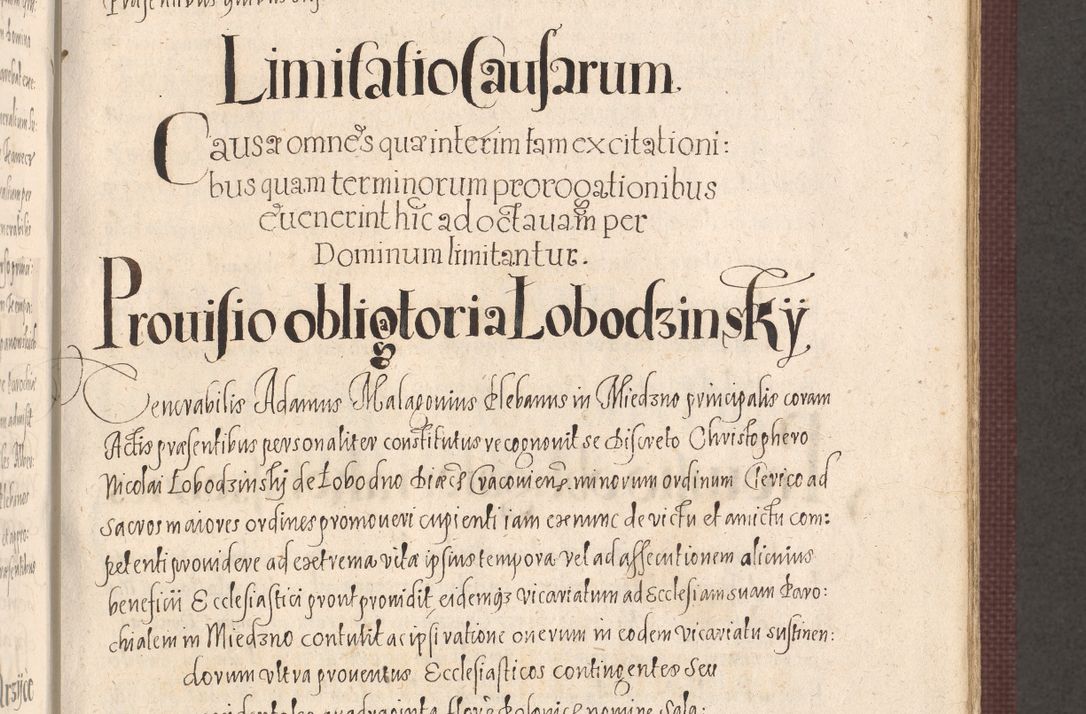 Limitatio Causarum.
Causæ omnes quæ interim tam excitationi:
bus quam terminorum prorogationibus
euenerint hic ad octauam per
Dominum limitantur.
Prouisio obligatoria Lobodzinskÿ
Venerabilis Adamus Malagonius Plebanus in Miedzno principalis coram
Actis præsentibus personaliter constitutus recognouit se discreto Christophero
Nicolai Lobodzinskÿ de Lobodno Diæcs Cracouiens. minorum ordinum Clerico ad
sacros maiores ordines promoueri cupienti iam ex nunc de victu et amictu com:
petenti prouidere ad extrema vitæ ipsius tempora vel ad assecutionem alicuius
beneficii Ecclesiastici prout prouidit eidemq3 vicariatum ad Ecclesiam suam Paro:
chialem in Miedzno contulit ac ipsi ratione onerum in eodem vicariatu sustinen:
dorum vltra prouentus Ecclesiasticos contingentes seu
quadraginta Polonicē nomine Sala: